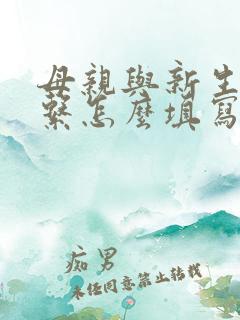 母親與新生
繫怎麼填寫
痴男
未經同意禁止转载